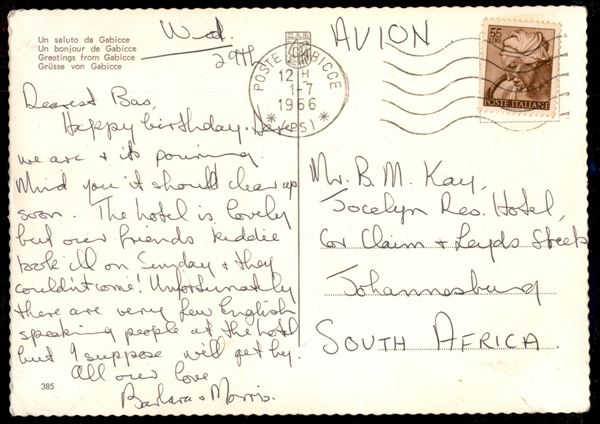 Un saluto da Gabicce
Un bonjour de Gabicce
Greetings from Gabicce
Grüsse von Gabicce
Wed.
29th
AVION
POSTE GABICCE
12 H
1-7
1966
* (PS) *
55
LIRE
POSTE ITALIANE
Dearest Bao,
Happy birthday. Here
we are & its pouring.
Mind you it should clear up
soon. The hotel is lovely
but our friends kiddie
took ill on Sunday & they
couldn't come! Unfortunately
there are very few English
speaking people at the hotel
but I suppose we'll get by.
All our love
Barbara & Morris.
385
Mr. B. M. Kay,
Jocelyn Res. Hotel,
Cor Claim & Leyds Streets
Johannesburg
SOUTH AFRICA.